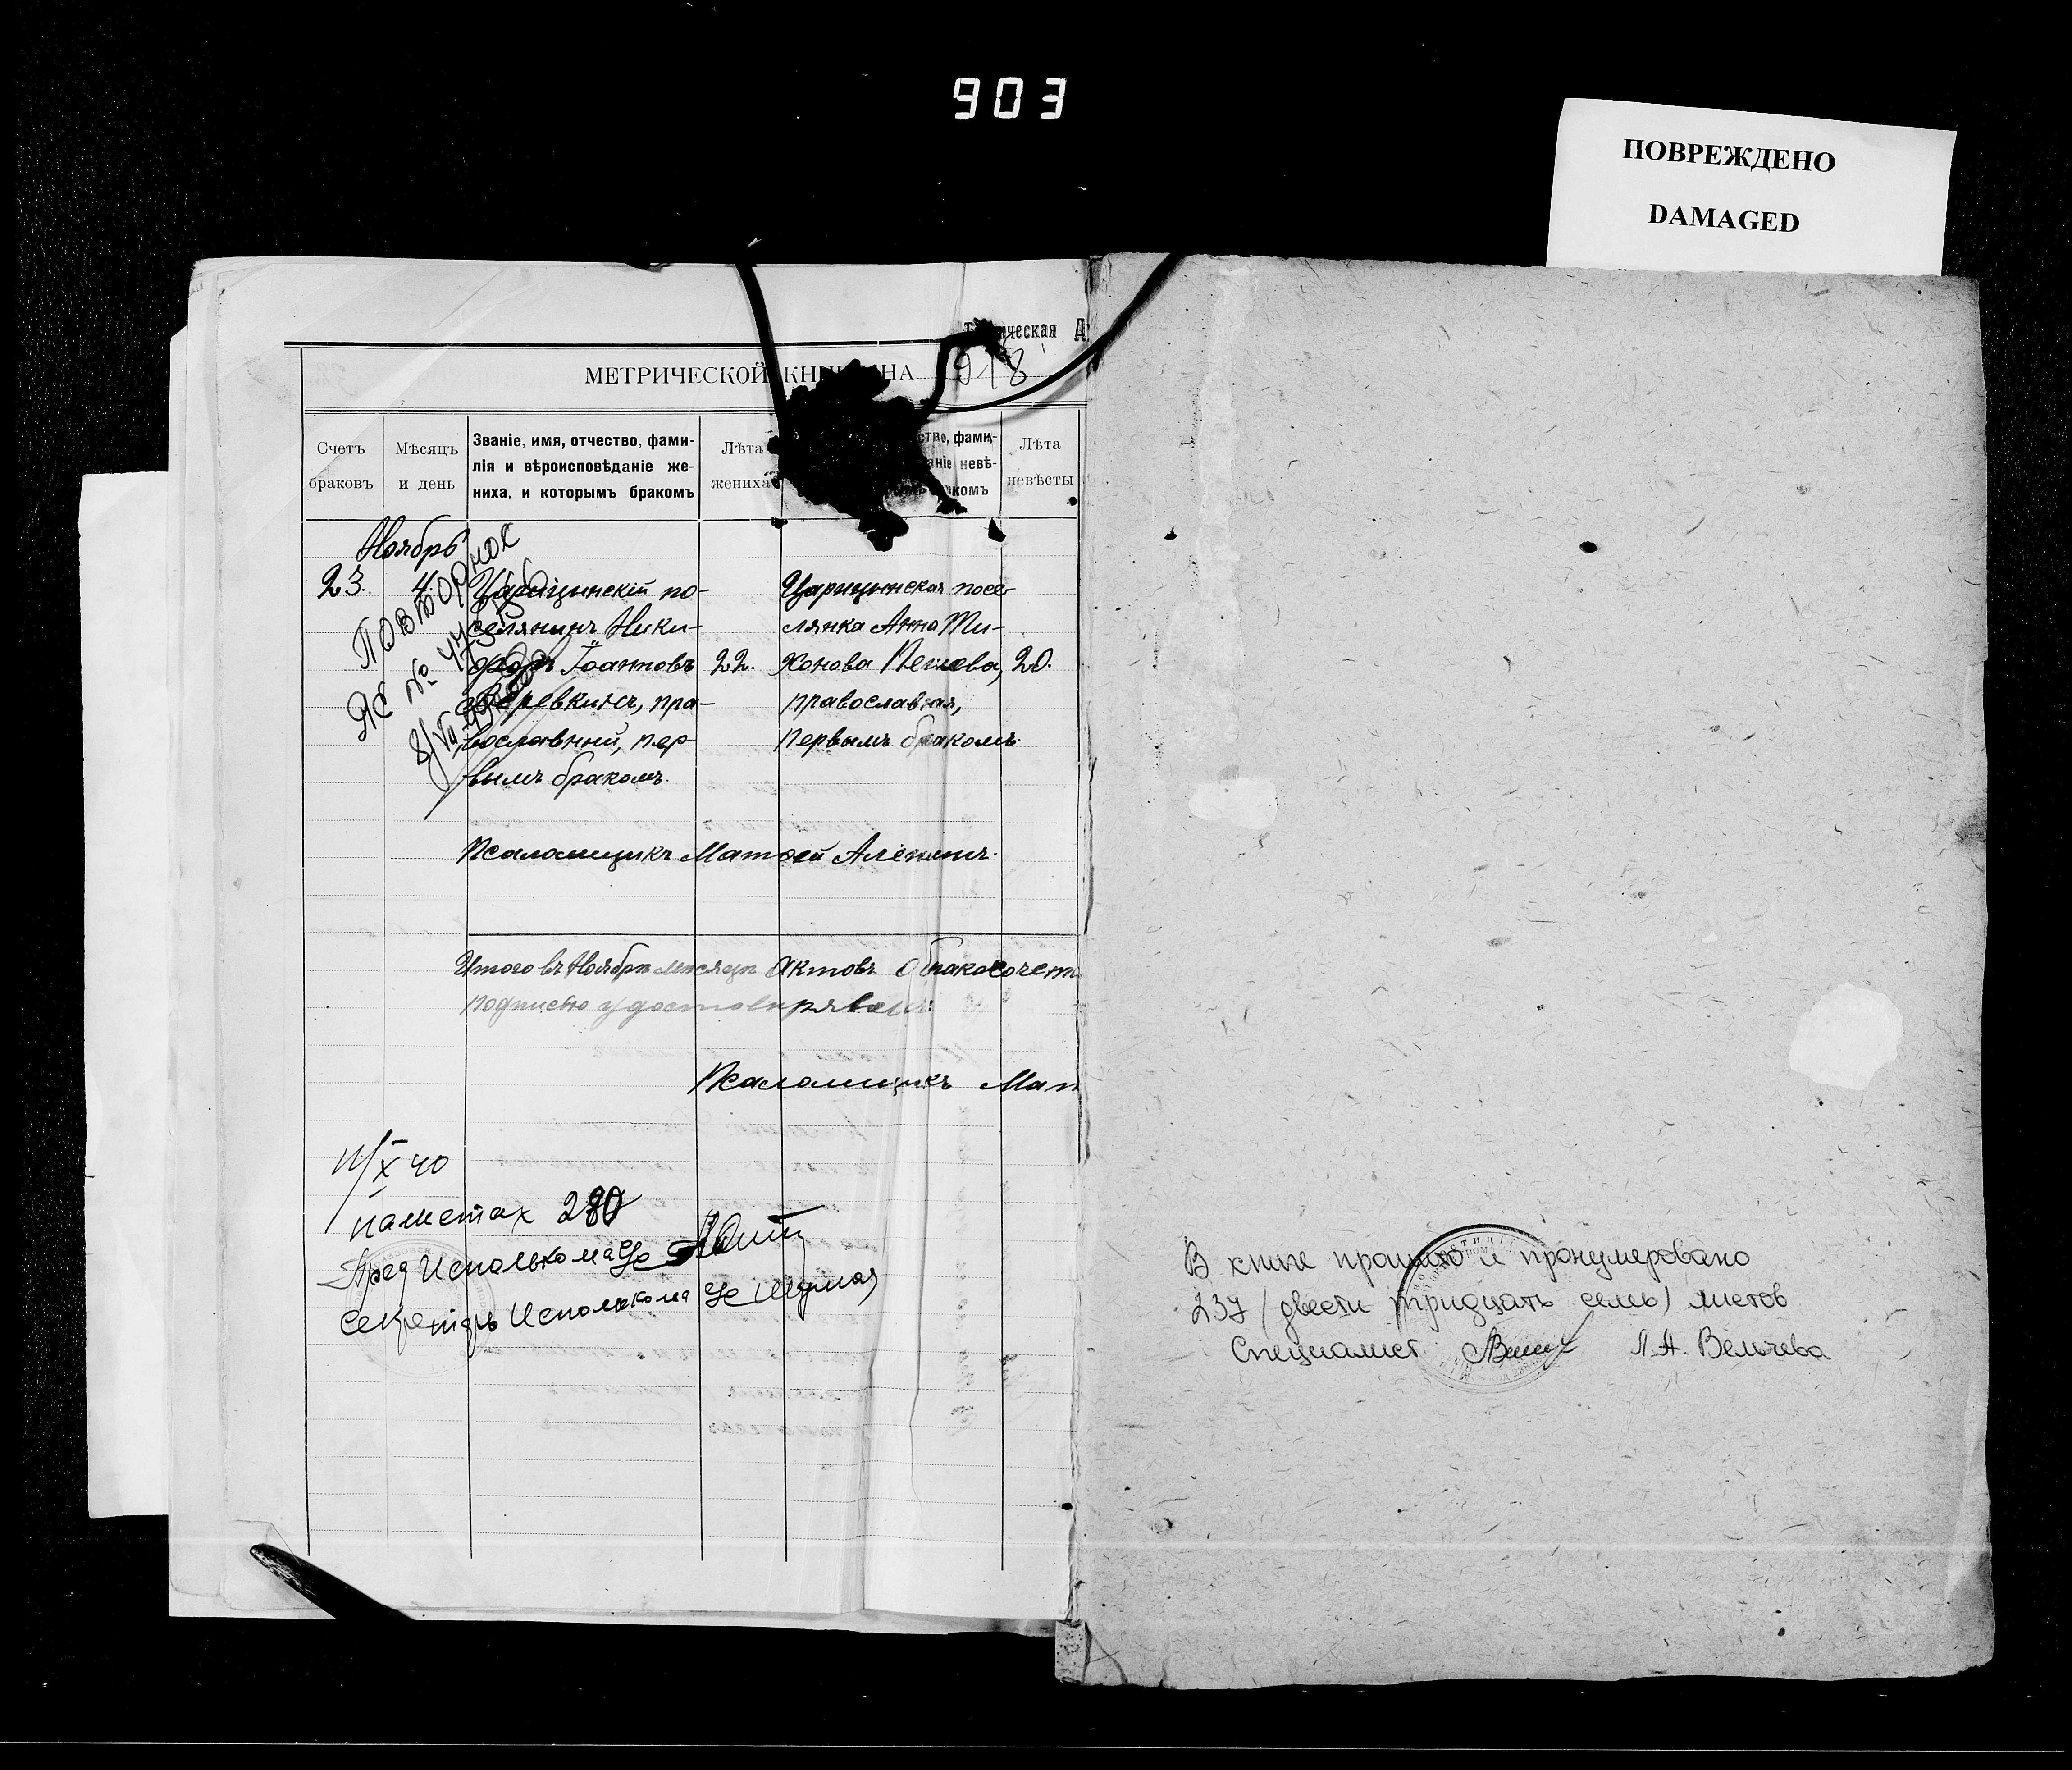 903
ПОВРЕЖДЕНО
DAMAGED
ческая
МЕТРИЧЕСКОЙ НА 918
Счетъ браковъ
Мѣсяцъ и день
Званіе, имя, отчество, фами-
лія и вѣроисповѣданіе же-
ниха, и которымъ бракомъ
Лѣта жениха
ство, фами-
аніе невѣ-
комъ
Лѣта невѣсты
Ноябрь
23. 4.
Царицынскій по-
селянинъ Ники-
форъ Іоанновъ
пра-
вославный, пер-
вымъ бракомъ.
22.
Царицынская посе-
лянка Анна Ти-
хонова
православная,
Первымъ бракомъ.
20.
Повторное
ЯС №
Псаломщикъ Матѳей Алекинъ.
Итого въ Ноябрѣ мѣсяцѣ актовъ о бракосочет
подписью удостовѣряемъ:
Псаломщикъ Мат
11/X 40
на листах 280
Пред Исполькома
Секретарь Исполькома
В книге прошито и пронумеровано
237 (двести тридцать семь) листов
Специалист Л.А. Вельчева